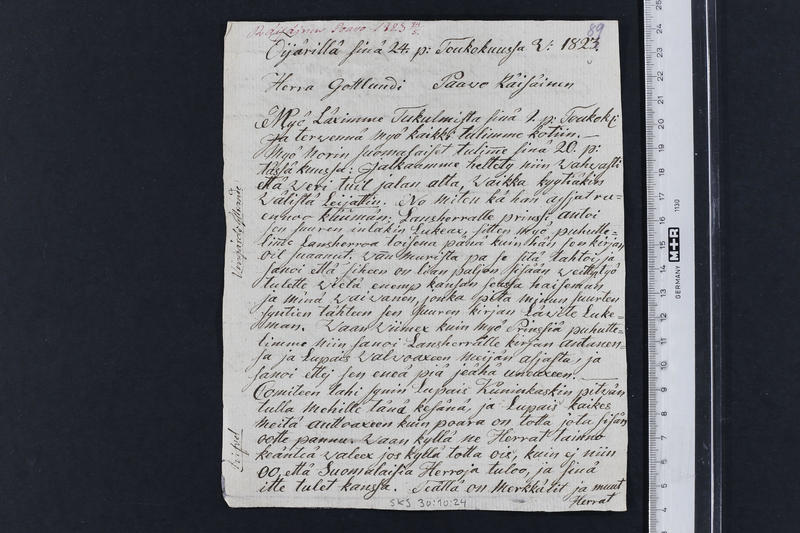 Räisäinen Paavo 1823 24/5.
89
Oijärillä sinä 24 p: Toukokuussa 3: 1823
Herra Gottlundi Paavo Räisäinen
Myö Läximme Tukulmista sinä 1. p: Toukok:
ja terwennä myö kaikki tulimme kotiin. —
Myö Norin suomalaiset tulime sinä 20. p:
tässä kuussa: Jalkaamme heltety niin wahwasti
että weri tuil jalan alta, waikka kyytiäkin
wälistä Leijattin. No miten kä hän assjat
Lansherralle prinssi, antoi
sen suuren inlakin Lukeax, sitten myö puhutte-
lime Lansherroa toisena pänä kuin hän sen kirjan
oil suanut. Wan murista pa se sitä tahtoi ja
sanoi että siheen on liian paljon sisään
tulette wielä enemp kansan seassa haiseman
ja minä waiwanen, jonka pitä minun suurten
syntien tähteen sen suuren kirjan Läwitte Luke-
man. Waan wiimex kuin myö Prinssiä puhutte-
limme niin sanoi Lansherralle kirjan
sa ja Lupais walwoaxeen meijän assjasta, ja
sanoi ettej sen eneä piä jeähä uneuxeen. —
Comiteen tahi synin Lupais Kuninkaskin pitwän
tulla mehille tänä kesänä, ja Lupais kaikes
meitä auttoaxeen kuin poara on totta jota sisän
ootte pannu. Waan kyllä ne Herrat taitano
keänteä walex jos kyllä totta ois, kuin ej niin
oo, että Suomalaisia Herroja tuloo, ja sinä
itte tulet kansa. Teällä on Merkkälit ja muut
Herrat
SKS 30:10:24
GERMANY
M+R
1130